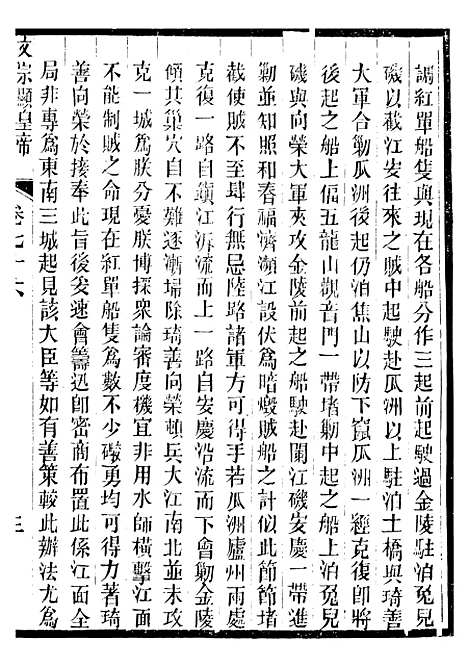 調紅單船隻與現在各船分作三起前起駛過金陵駐泊兔兒
磯以截江安往來之賊中起駛赴瓜洲以上駐泊土橋與琦善
大軍合勦瓜洲後起仍泊焦山以防下竄瓜洲一經克復卽將
後起之船上偪五龍山觀音門一帶堵勦中起之船上泊兔兒
磯與向榮大軍夾攻金陵前起之船駛赴闌江磯安慶一帶進
勦並知照和春福濟瀕江設伏爲暗燬賊船之計似此節節堵
截使賊不至肆行無忌陸路諸軍方可得手若瓜洲廬州兩處
克復一路自鎭江泝流而上一路自安慶沿流而下會勦金陵
傾其巢穴自不難逐漸埽除琦善向榮頓兵大江南北並未攻
克一城爲朕分憂朕博採衆論審度機宜非用水師橫擊江面
不能制賊之命現在紅單船隻爲數不少礮勇均可得力著琦
善向榮於接奉此旨後妥速會籌迅卽密商布置此係江面全
局非專爲東南三城起見該大臣等如有善策較此辦法尤爲
文宗顯皇帝 卷七十六 三